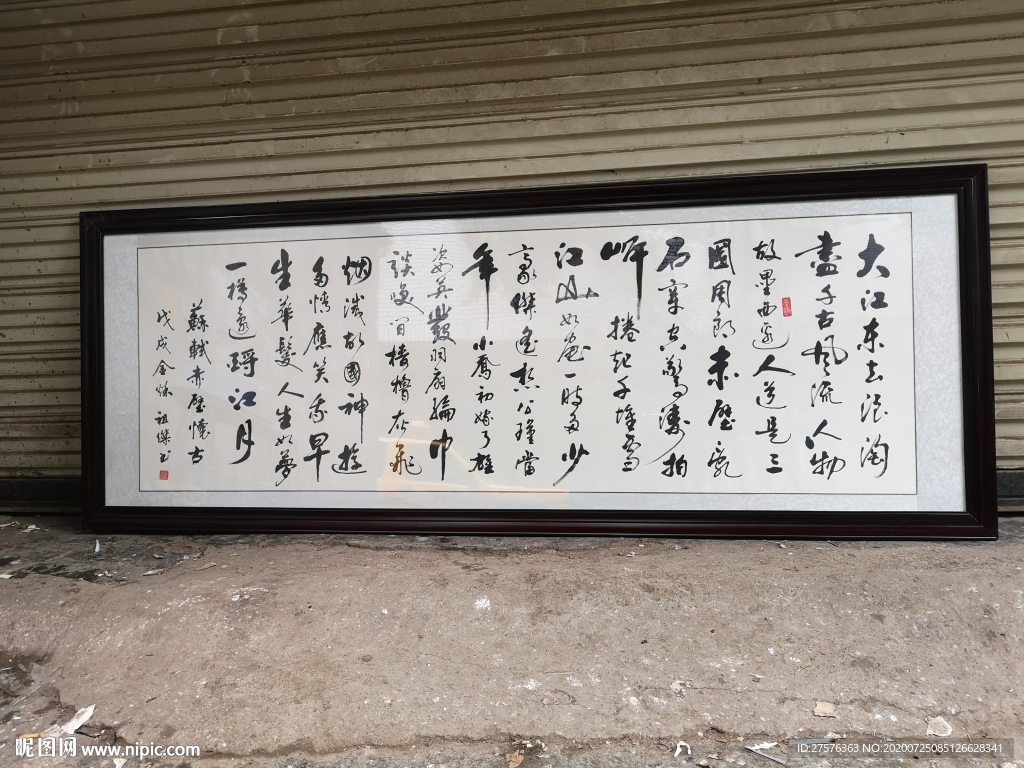 大江东去浪淘
盡千古风流人物
故壘西邊人道是三
國周郎赤壁亂
石穿空驚濤拍
岸捲起千堆雪
江山如畫一時多少
豪傑遙想公瑾當
年小喬初嫁了雄
姿英發羽扇綸巾
談笑間檣櫓灰飛
烟滅故國神遊
多情應笑我早
生華髮人生如夢
一樽還酹江月
蘇軾赤壁懷古
戊戌金秋 祖傑书
昵图网 www.nipic.com
ID:27576363 NO:20200725085126628341